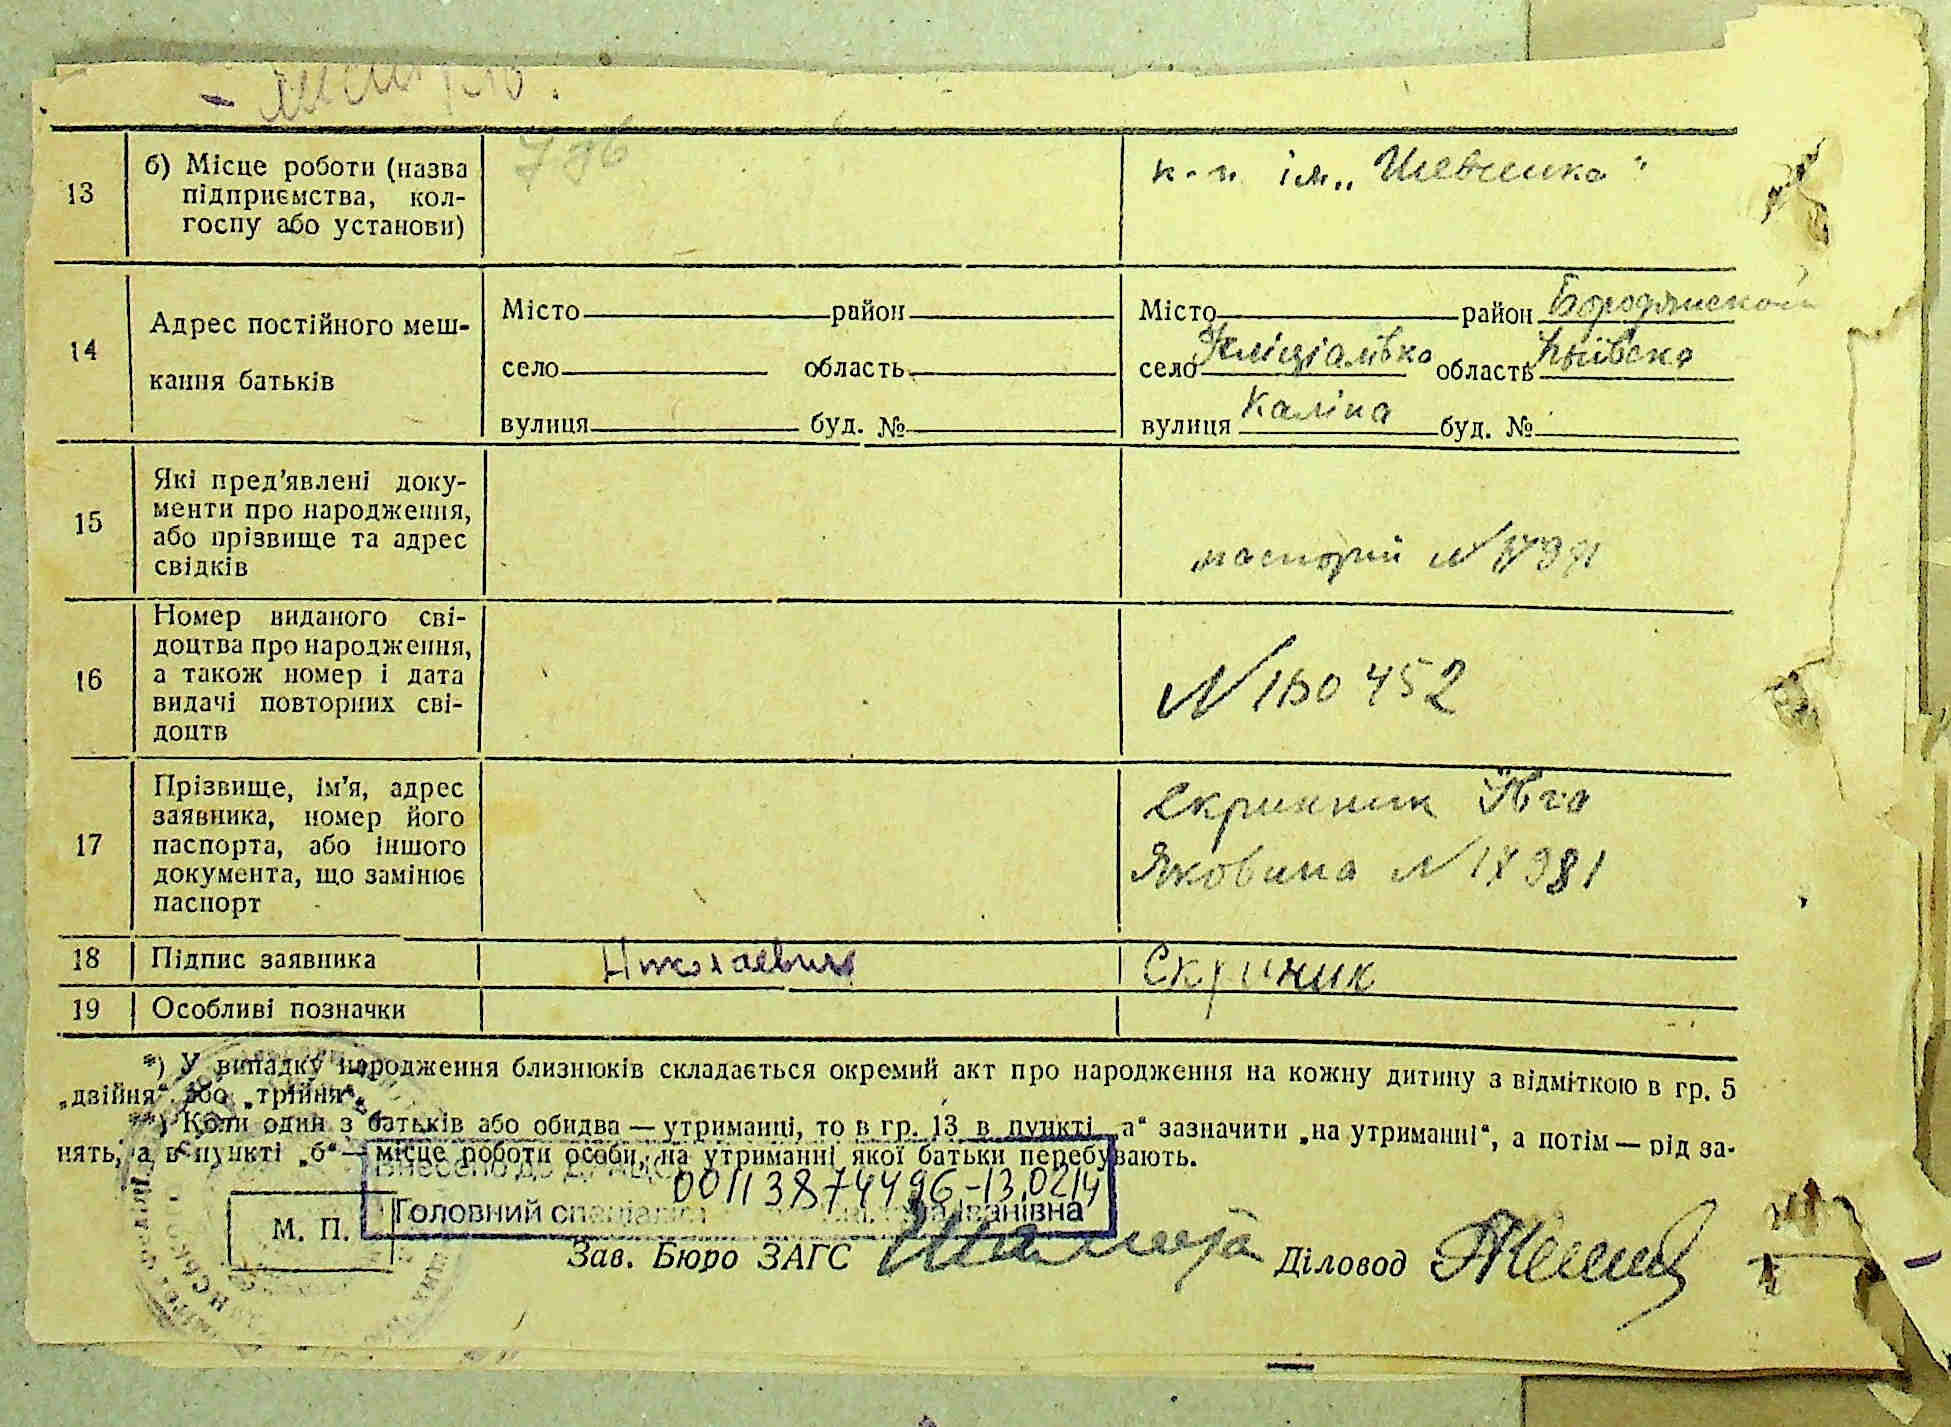 796
13
б) Місце роботи (назва
підприємства, кол-
госпу або установи)
к-п ім. „Шевченка"
14
Адрес постійного меш-
кання батьків
Місто район
село область
вулиця буд. №
Місто район Бородянской
село область Київска
вулиця Каліна буд. №
15
Які пред'явлені доку-
менти про народження,
або прізвище та адрес
свідків
паспорт №
16
Номер виданого сві-
доцтва про народження,
а також номер і дата
видачі повторних сві-
доцтв
452
17
Прізвище, ім'я, адрес
заявника, номер його
паспорта, або іншого
документа, що замінює
паспорт
Скринник
Яковина №
18 Підпис заявника
Скриник
19 Особливі позначки
*) У випадку народження близнюків складається окремий акт про народження на кожну дитину з відміткою в гр. 5
„двійня" або „трійня".
**) Коли один з батьків або обидва — утриманці, то в гр. 13 в пункті „а" зазначити „на утриманні", а потім — рід за-
нять, а в пункті „б" — місце роботи особи, на утриманні якої батьки перебувають.
Внесено до ДРАЦС
00113874496-13.0214
Головний спеціаліст Іванівна
М. П.
Зав. Бюро ЗАГС Діловод